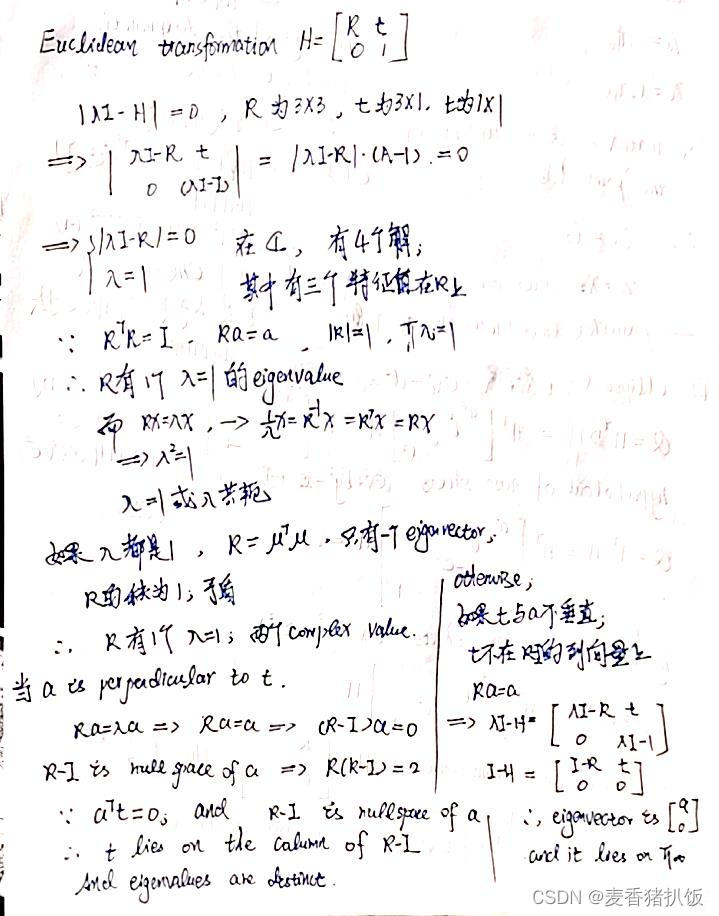 Euclidean transformation H = [R t; 0 1]
|λI-H| = 0 , R 为 3X3 , t 为 3X1. t为1X1
⟹ |λI-R t; 0 (λI-I)| = |λI-R|·(λ-1) .=0
⟹ { |λI-R| = 0 在 ℂ , 有4个解;
λ=1 其中有三个特征值在R上
∵ RᵀR = I Ra=a , |R|=1 , πλ=1
∴ R有1个 λ=1 的eigenvalue
而 RX=λX , → 1/λ X = R⁻¹X = RᵀX = RX
⟹ λ²=1
λ=1 或 λ 共轭
如果 λ都是1 , R = μᵀμ , 只有一个 eigenvector,
R的秩为1; 矛盾
∴ R 有1个 λ=1; 两个 complex value.
当 a is perpendicular to t.
Ra=λa ⟹ Ra=a ⟹ (R-I)a=0
R-I is null space of a ⟹ R(R-I)=2
∵ aᵀt=0; and R-I is nullspace of a
∴ t lies on the column of R-I
And eigenvalues are distinct.
otherwise;
如果t与a不垂直;
t不在R-I的列向量上
Ra=a
⟹ λI-H = [λI-R t; 0 λI-1]
I-H = [I-R t; 0 0]
∴ eigenvector is [a; 0]
and it lies on π∞
CSDN @麦香猪扒饭